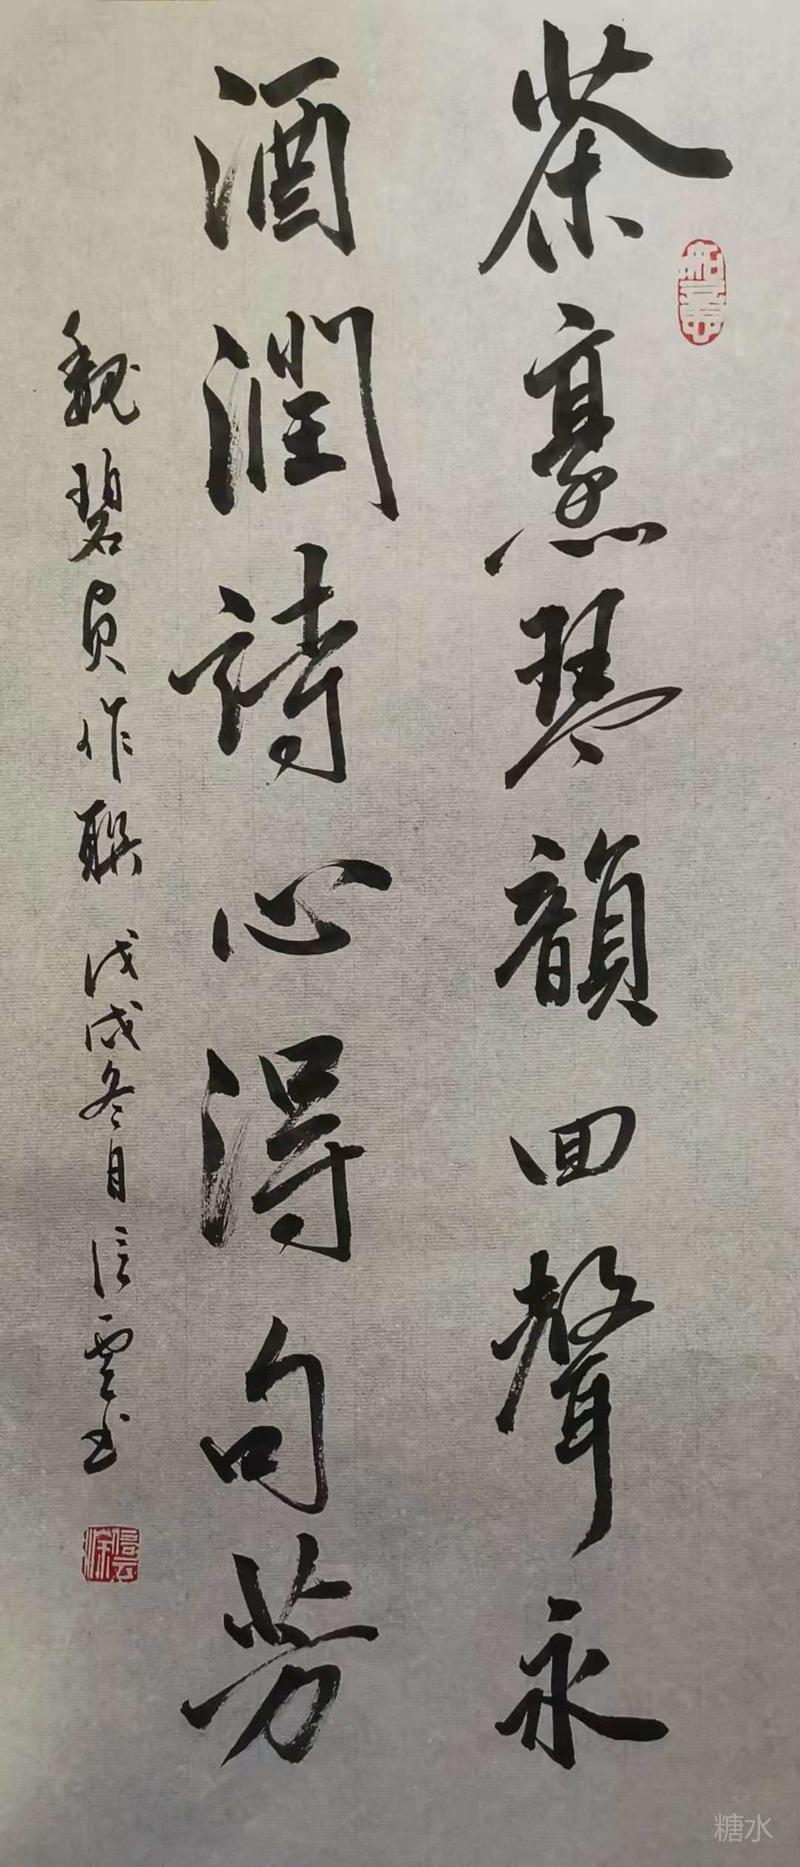 茶熏琴韻回聲永
酒潤詩心得句芳
魏碧貞作聯 戊戌冬月信雲书
信云
糖水